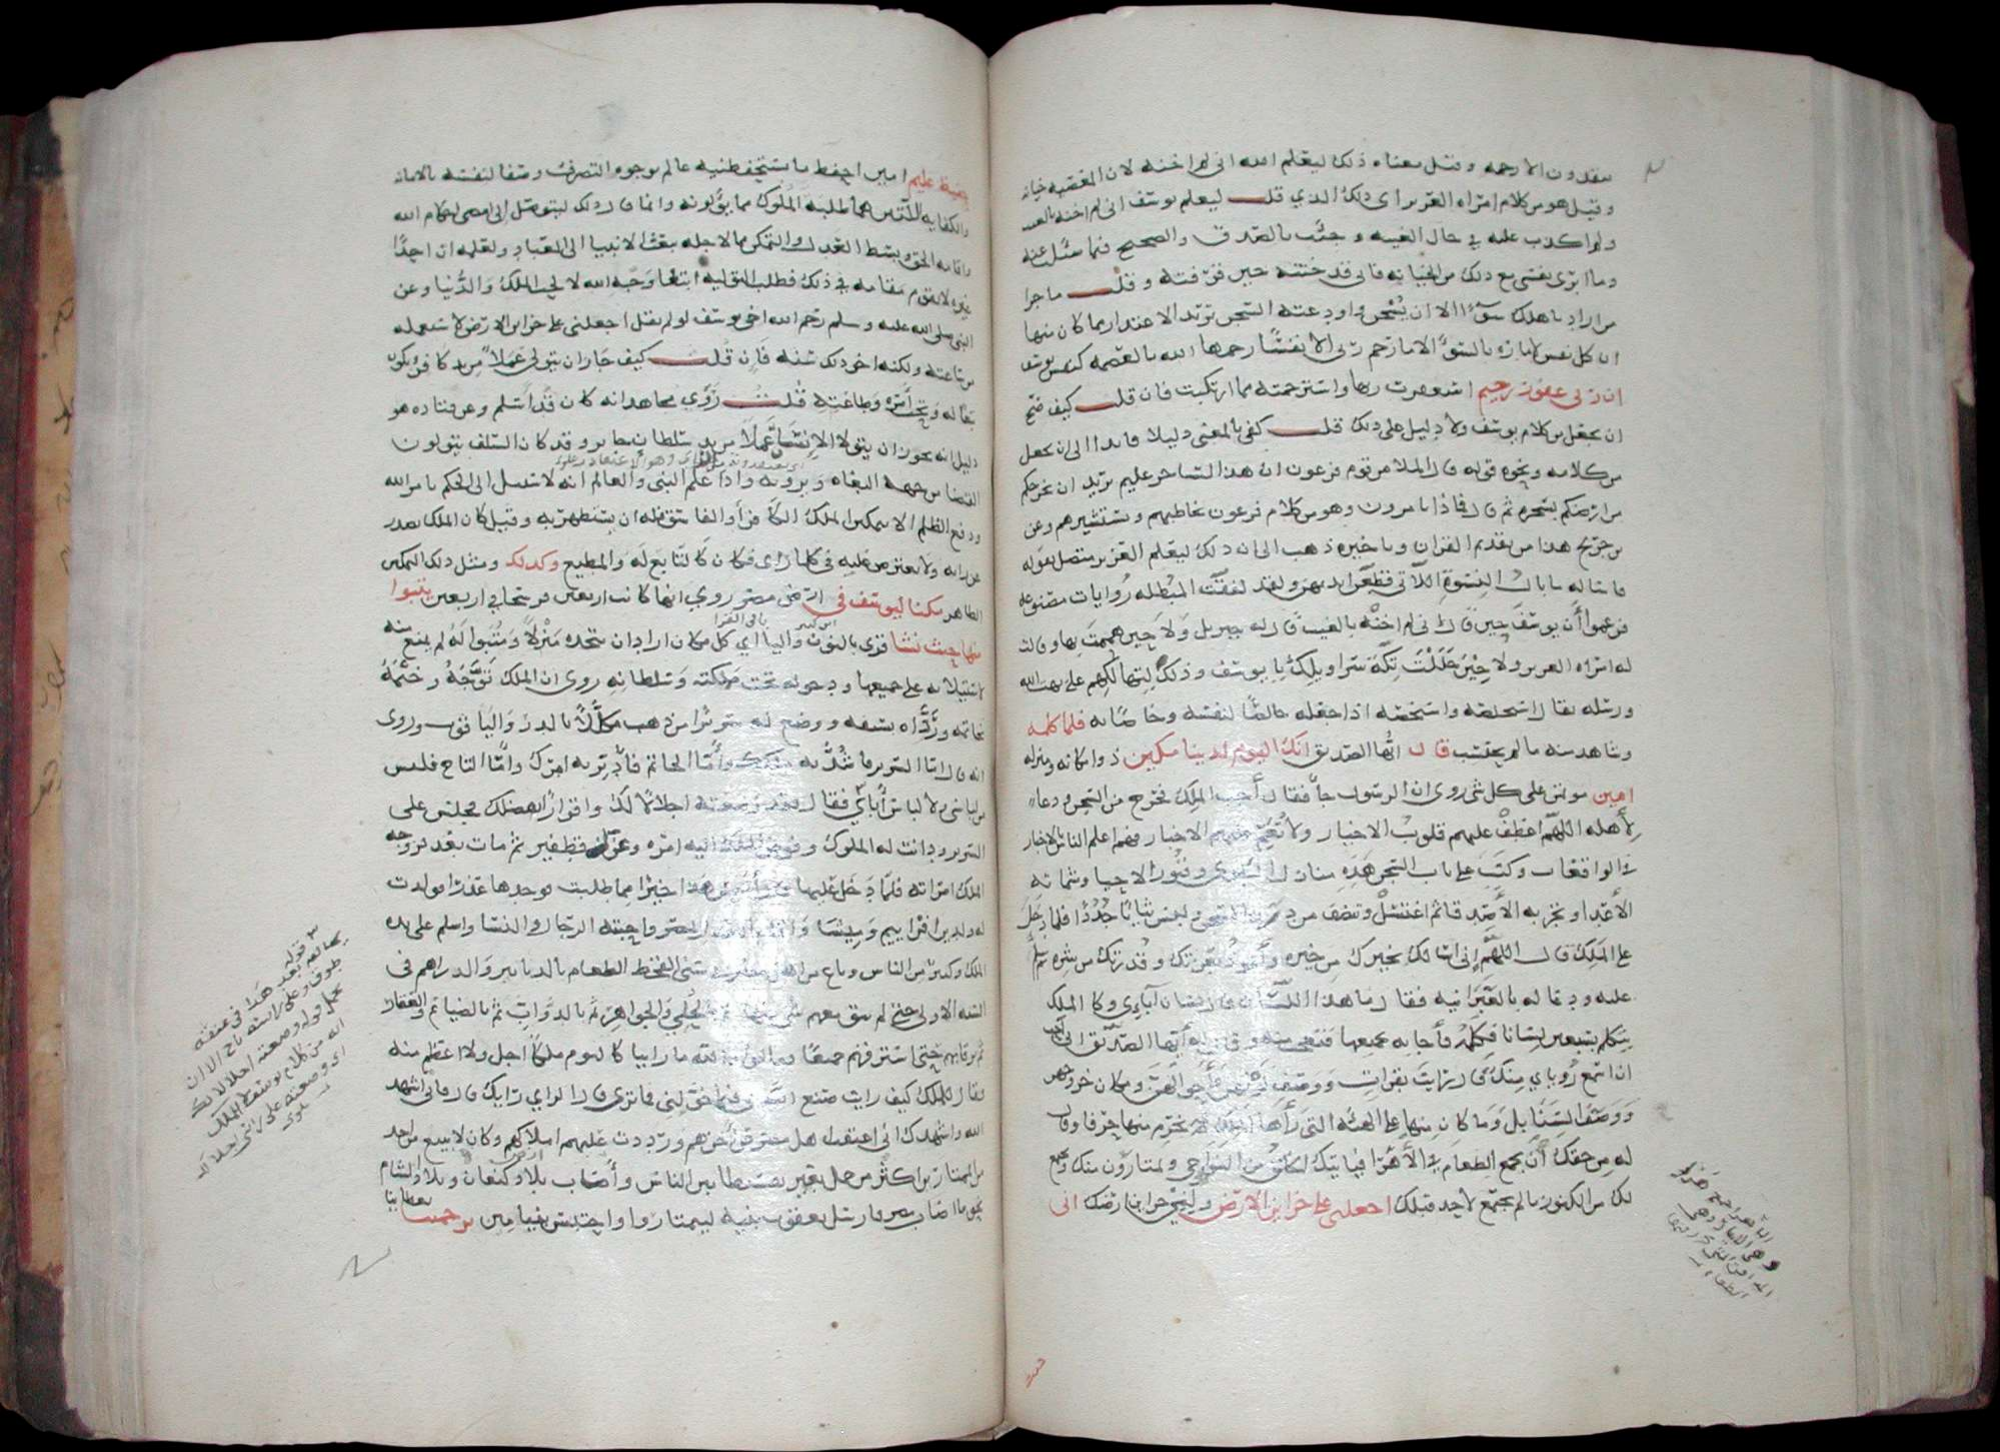 ينقذون الا رحمه وقيل معناه ذلك ليعلم الله اني لم اخنه لان المعصيه خيانه
وقيل هو من كلام امراه العزيز اى ذلك الذي قلت ليعلم يوسف انى لم اخنه بالغيب
ولم اكذب عليه في حال الغيبه وجئت بالصدق والصحيح فيما سئلت عنه
وما ابرى نفسي مع ذلك من الخيانه فانى قد خنته حين قرفته وقلت ما جزا
من اراد باهلك سوءا الا ان يسجن واودعته السجن تريد الاعتذار مما كان منها
ان كل نفس لامارة بالسوء الا ما رحم ربى الا نفسا رحمها الله بالعصمه كنفس يوسف
ان ربى غفور رحيم استغفرت ربها واسترحمته مما ارتكبت فان قلت كيف صح
ان يجعل من كلام يوسف ولا دليل على ذلك قلت كفى بالمعنى دليلا قايدا الى ان يجعل
من كلامه ونحوه قوله قال الملا من قوم فرعون ان هذا لساحر عليم يريد ان يخرجكم
من ارضكم بسحره ثم قال فماذا تامرون وهو من كلام فرعون يخاطبهم ويستشيرهم وعن
بن جريج هذا من تقديم القران وتاخيره ذهب الى ان ذلك ليعلم العزيز متصل بقوله
فاساله ما بال النسوة اللاتى قطعن ايديهن ولقد لفقت المبطله روايات مصنوعه
فزعموا أن يوسف حين قال انى لم اخنه بالغيب قال له جبريل ولا حين هممت بها وقالت
له امراه العزيز ولا حين حللت تكة سراويلك يا يوسف وذلك لتهالكهم على بهت الله
ورسله يقال استخلصه واستخصه اذا جعله خالصا لنفسه وخاصا به فلما كلمه
وشاهد منه ما لم يحتسب قال ايها الصديق انك اليوم لدينا مكين ذو مكانه ومنزله
امين موتمن على كل شي روى ان الرسول جاءه فقال أجب الملك فخرج من السجن ودعا
لأهله اللهم اعطف عليهم قلوب الاخيار ولا تعم عليهم الاخبار فهم اعلم الناس بالاخبار
في الواقعات وكتب على باب السجن هذه منازل البلوى وقبور الاحيا وشماتة
الأعدا وتجربه الأصدقا ثم اغتسل وتنظف من درن السجن ولبس ثيابا جددا فلما دخل
على الملك قال اللهم إنى اسالك بخيرك من خيره وأعوذ بعزتك وقدرتك من شره ثم سلم
عليه ودعا له بالعبرانيه فقال ما هذا اللسان قال لسان آباءي وكان الملك
يتكلم بسبعين لسانا فكلمه بها فأجابه بجميعها فتعجب منه وقال أيها الصديق انى احب
ان اسمع رؤياي منك قال رايت بقرات ووصف لونهن وأحوالهن ومكان خروجهن
ووصف السنابل وما كان منها على الهيئه التى رأها الملك لم يخرم منها حرفا وقال
له من حقك أن تجمع الطعام في الأهرا فياتيك الخلق من النواحي ويمتارون منك ويجتمع
لك من الكنوز ما لم يجتمع لأحد قبلك اجعلنى على خزاين الارض ولنى خزاين ارضك انى
حفيظ عليم امين احفظ ما تستحفظنيه عالم بوجوه التصرف وصفا لنفسه بالامانه
والكفايه اللتين هما طلبة الملوك مما يولونه وانما قال ذلك ليتوصل الى امضى احكام الله
واقامه الحق وبسط العدل والتمكن مما لاجله تبعث الانبيا الى العباد ولعلمه ان احدا
غيره لا يقوم مقامه في ذلك فطلب التوليه ابتغا وجه الله لا لحب الملك والدنيا وعن
النبى صلى الله عليه وسلم رحم الله اخى يوسف لو لم يقل اجعلنى على خزاين الارض لاستعمله
من ساعته ولكنه اخر ذلك سنه فإن قلت كيف جاز ان يتولى عملا من يد كافر ويكون
تبعا له وتحت أمره وطاعته قلت رؤى مجاهد انه كان قد اسلم وعن قتاده هو
دليل انه يجوز ان يتولا الانسان عملا من يد سلطان جاير وقد كان السلف يتولون
القضا من جهه البغاه ويرونه واذا علم النبى والعالم انه لا سبيل الى الحكم بامر الله
ودفع الظلم الا بتمكين الملك الكافر أو الفاسق فله ان يستظهر به وقيل كان الملك يصدر
عن رايه ولا يعترض عليه فى كلما راى فكان كالتابع له والمطيع وكذلك ومثل ذلك التمكين
الظاهر مكنا ليوسف في ارض مصر روي انها كانت اربعين فرسخا في اربعين يتبوا
منها حيث نشا قرى بالنون واليا اي كل مكان اراد ان يتخذه منزلا ومتبوا له لم يمنع منه
لاستيلائه على جميعها ودخوله تحت مملكته وسلطانه روى ان الملك توجه وختمه
بخاتمه وردّاه بسيفه ووضع له سريرا من ذهب مكللا بالدر والياقوت وروى
انه قال اما السرير فأشد به ملكك وأما الخاتم فأدبر به امرك وأما التاج فليس
من لباسى ولا لباس أباءي فقال قد وضعته اجلالا لك واقرارا بفضلك فجلس على
السرير ودانت له الملوك وفوض الملك اليه امره وعزل قطفير ثم مات بعد فزوجه
الملك امراته فلما دخل عليها قال أليس هذا خيرا مما طلبت فوجدها عذرا فولدت
له ولدين افراييم وميشا وأقام العدل بمصر واحبته الرجال والنسا واسلم على يده
الملك وكثير من الناس وباع من اهل مصر في سنى القحط الطعام بالدنانير والدراهم فى
السنه الاولى حتى لم يبق معهم شى منها ثم بالحلي والجواهر ثم بالدواب ثم بالضياع والعقار
ثم برقابهم حتى استرقهم جميعا فقالوا والله ما راينا كاليوم ملكا اجل ولا اعظم منه
فقال للملك كيف رايت صنع الله بى فيما خولنى فما ترى قال الراي رايك قال فانى اشهد
الله واشهدك انى اعتقت اهل مصر عن اخرهم ورددت عليهم املاكهم وكان لا يبيع من احد
من الممتارين اكثر من حمل بعير تقسيطا بين الناس وأصاب بلاد كنعان وبلاد الشام
نحو ما اصاب مصر فارسل يعقوب بنيه ليمتاروا واحتبس بنيامين